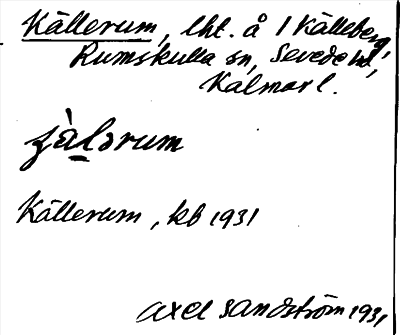 Källerum, lht. å 1 Källeberg,
Rumskulla sn, Sevede hd,
Kalmar l.
jàlərum
Källerum, kb 1931
Axel Sandström 1931